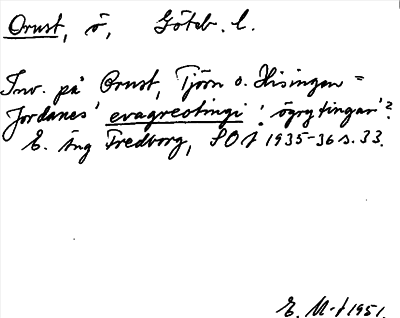 Orust, ö, Göteb. l.
Inv. på Orust, Tjörn o. Hisingen =
Jordanes' evagreotingi: 'ögrytingar'?
E. Äng Fredborg, SOÅ 1935-36 s. 33.
E. M-t 1951.